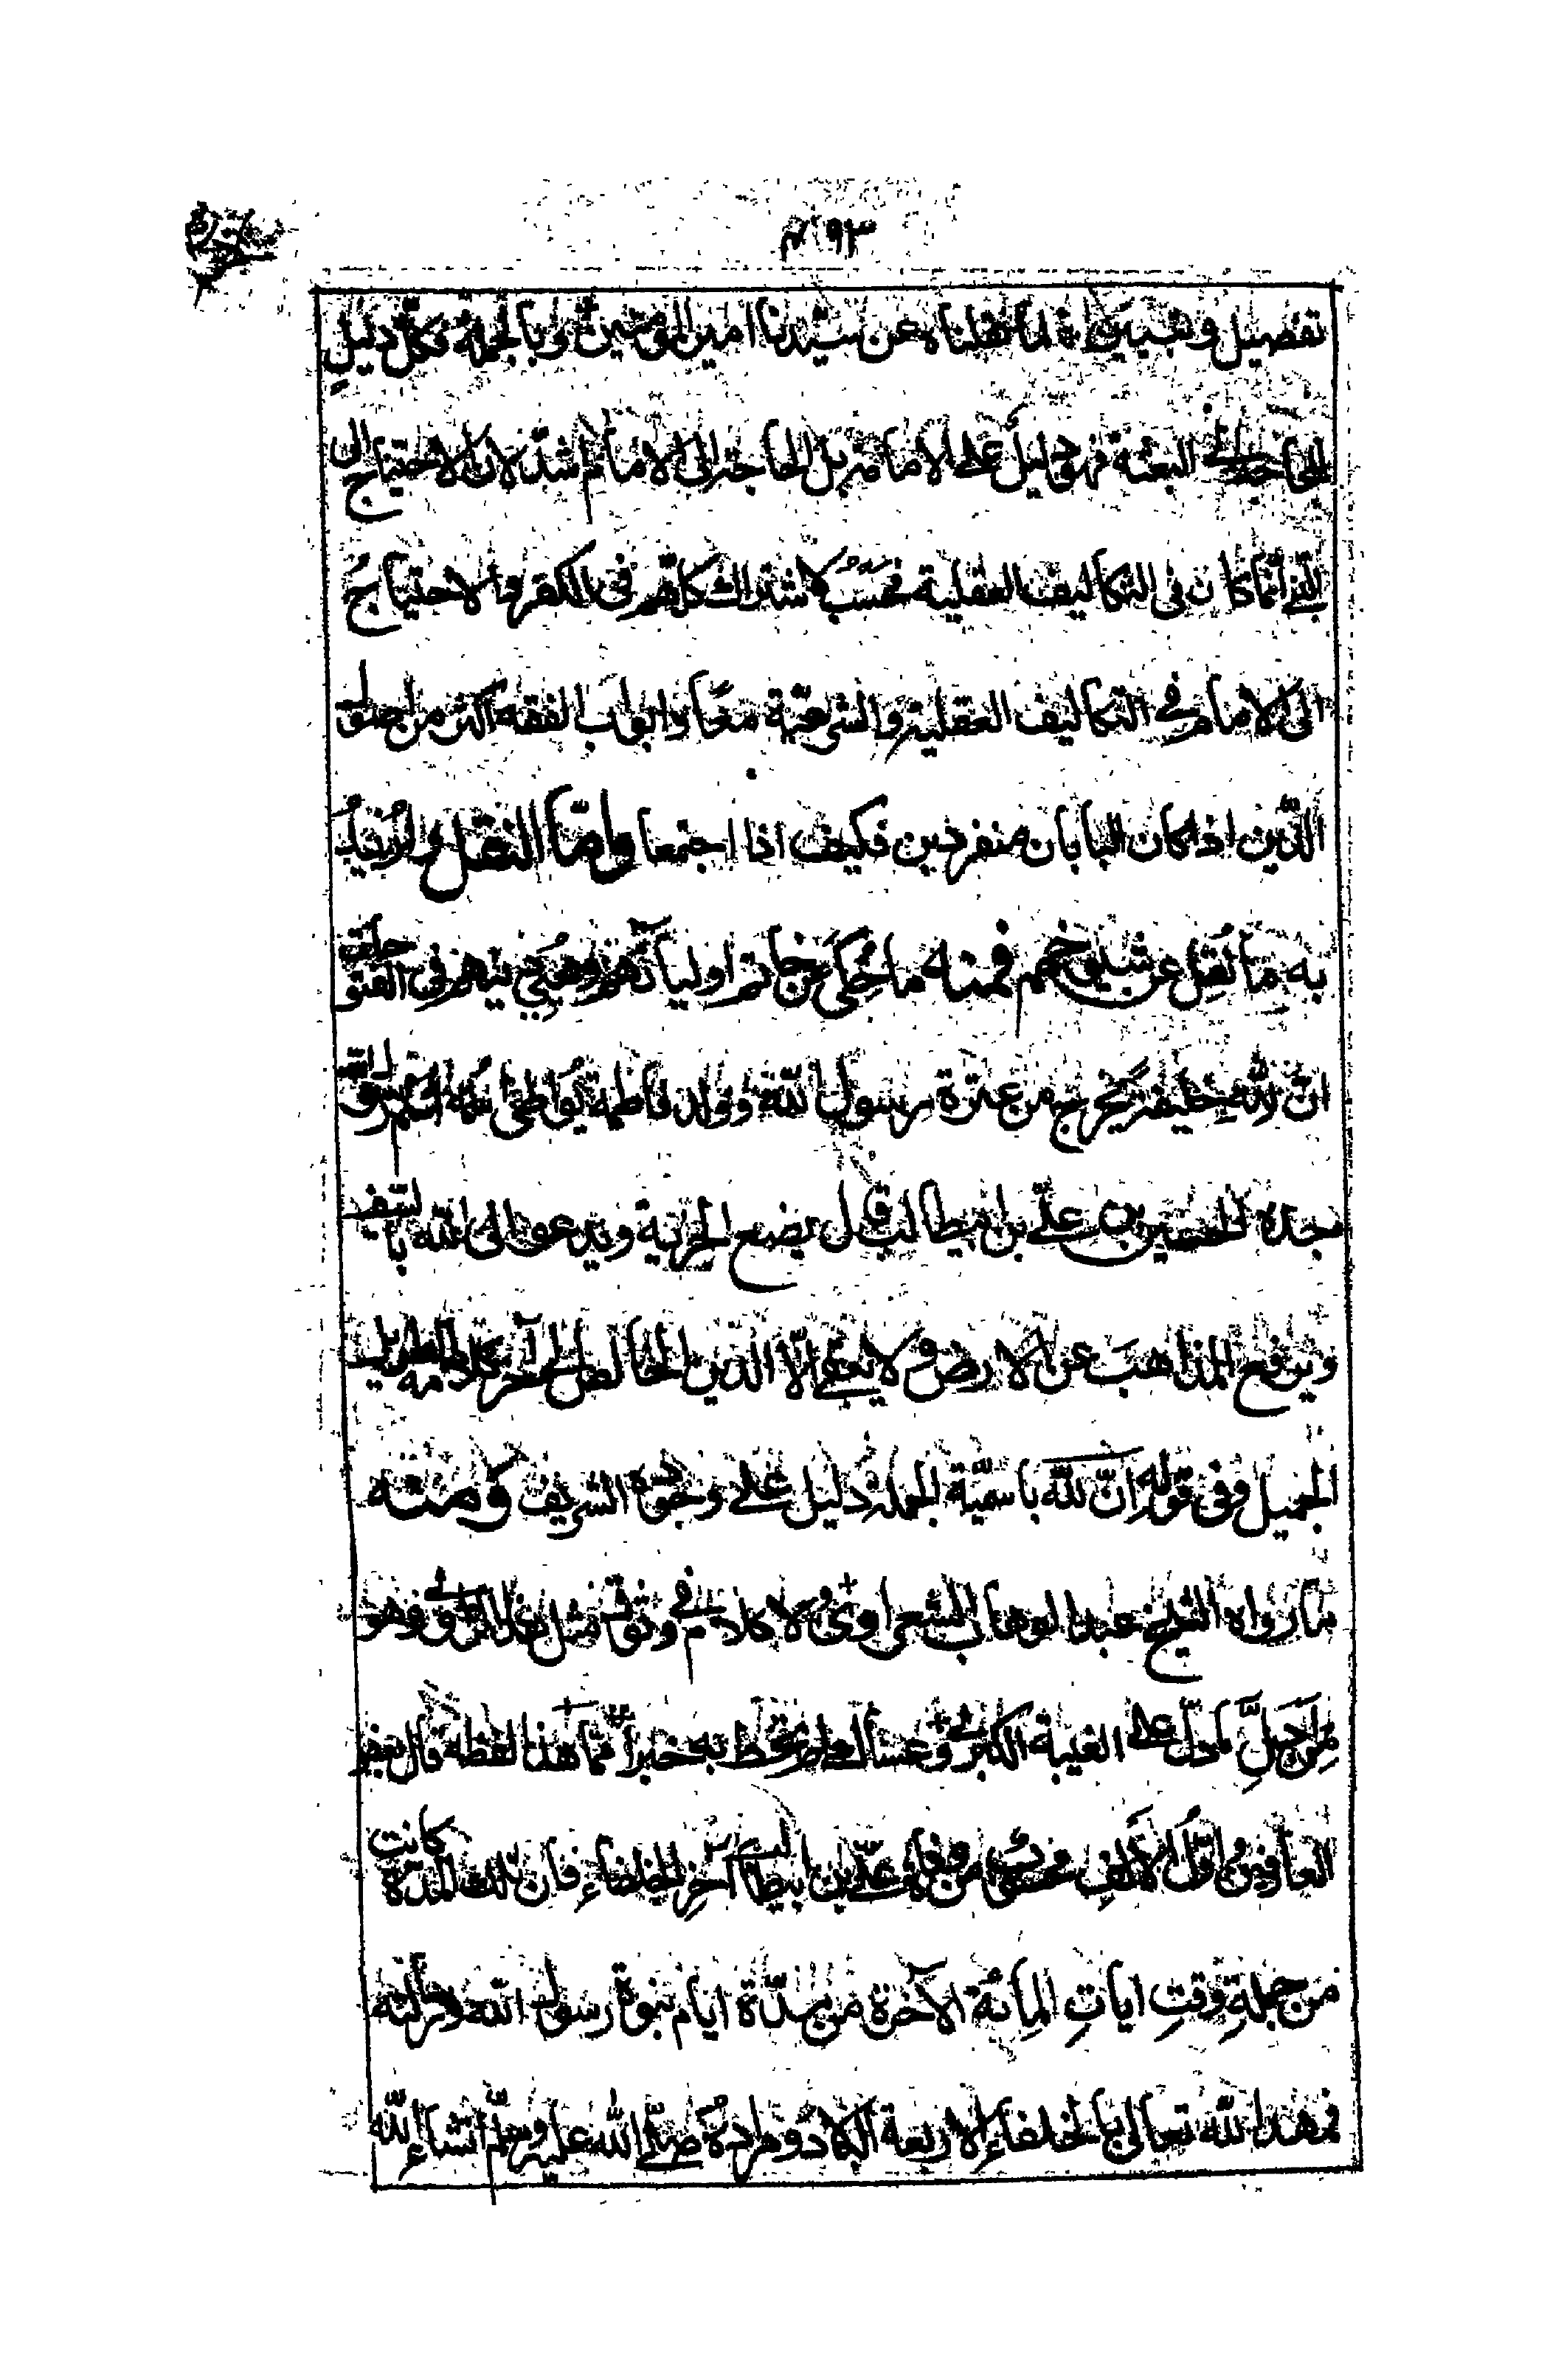 تفصيل وتبيين لما نقلناه عن سيدنا امير المؤمنين وبالجملة فكل دليل
الحاجة الى البعثة فهو دليل على الامامة بل الحاجة الى الامام اشد لان الاحتياج الى
النبي انما كان في التكاليف العقلية فحسب لاشتراك كلهم في الكفر والاحتياج
الى الامام في التكاليف العقلية والشرعية معا وابواب الفقه اكثر من اصول
الدين اذا كان البابان منفردين فكيف اذا اجتمعا واما النقل
به ما نقل عن شيوخهم فمنه ما حكي عن خاتم اوليائهم في الفتوحات
ان لله خليفة يخرج من عترة رسول الله وولد فاطمة يواطئ اسمه اسم رسول الله
جده الحسين بن علي بن ابيطالب قال يضع الجزية ويدعو الى الله بالسيف
ويرفع المذاهب عن الارض ولا يبقى الا الدين الخالص الى آخر كلامه الطويل
الجميل وفي قوله ان لله باسمية الجملة دليل على وجوده الشريف ومنه
ما رواه الشيخ عبد الوهاب الشعراوي ولا كلام في وثوق مثل هذا وهو
من اجل ما دل على الغيبة الكبرى تحط به خبرا مما هذا لفظه قال بعض
العارفين اول الالف محسوب من وفاة علي بن ابيطالب آخر الخلفاء فان تلك المدة كانت
من جملة وقت ايات المائة الآخرة من مدة ايام نبوة رسول الله ورسالته
فمهد الله تعالى بالخلفاء الاربعة البلاد ومراده صلى الله عليه وسلم انشاء الله